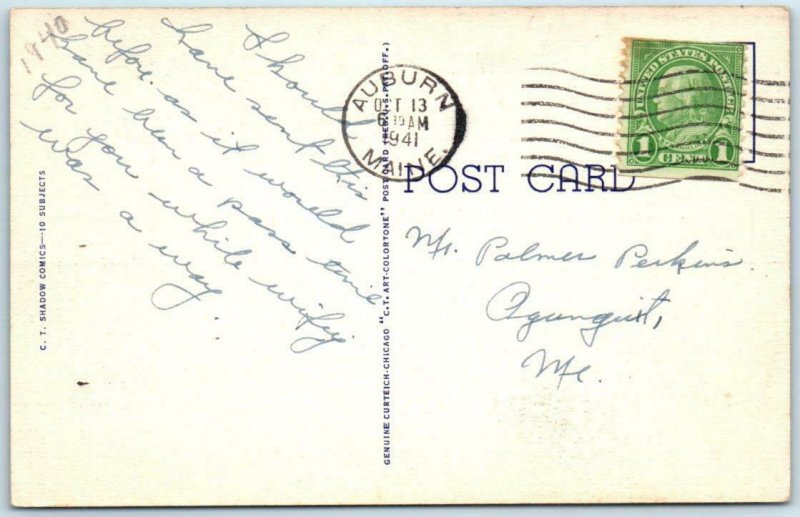 1940
Should
have sent this
before as it would
have been a pass time
for you while wifey
was a way.
C. T. SHADOW COMICS—10 SUBJECTS
GENUINE CURTEICH-CHICAGO "C.T. ART-COLORTONE" POST CARD (REG. U.S. PAT. OFF.)
AUBURN
OCT 13
AM
1941
MAINE.
UNITED STATES POSTAGE
1 CENT 1
POST CARD
Mr. Palmer Perkins
Ogunquit,
Me.